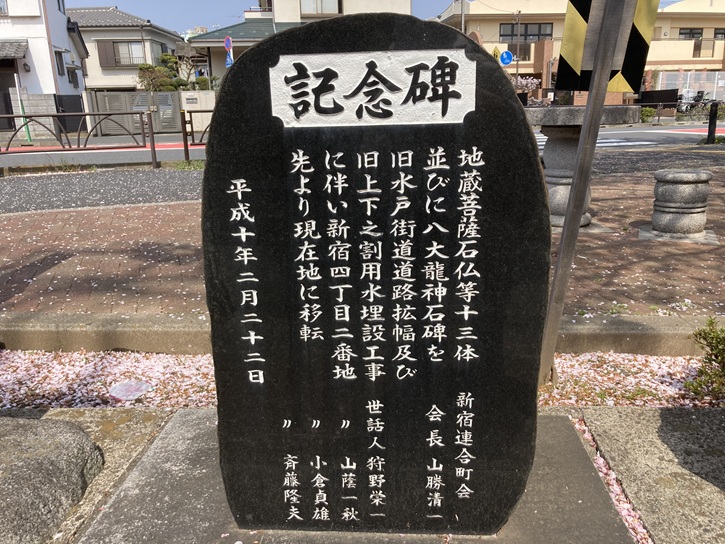 記念碑
地蔵菩薩石仏等十三体
並びに八大龍神石碑を
旧水戸街道道路拡幅及び
旧上下之割用水埋設工事
に伴い新宿四丁目二番地
先より現在地に移転
平成十年二月二十二日
新宿連合町会
会長 山勝清一
世話人 狩野栄一
〃 山蔭一秋
〃 小倉貞雄
〃 斉藤隆夫